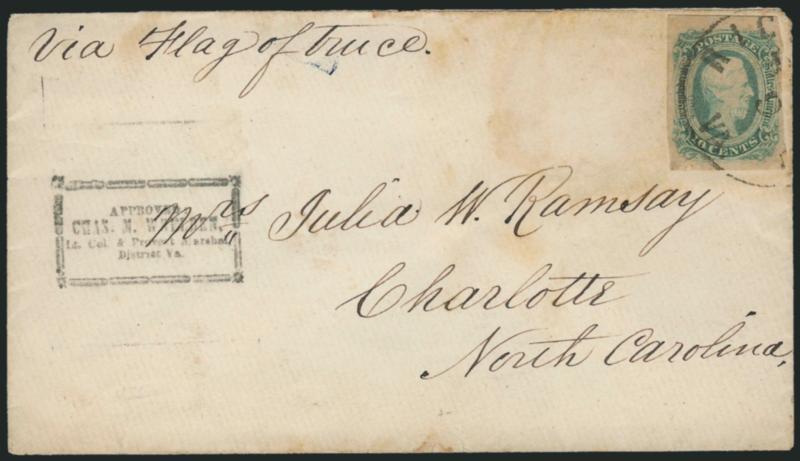 Via Flag of truce.
POSTAGE
CENTS
RICH
VA
APPROVED
CHAS. M. WHELDEN,
Lt. Col. & Provost Marshal
District Va.
Mrs Julia W. Ramsay
Charlotte
North Carolina,